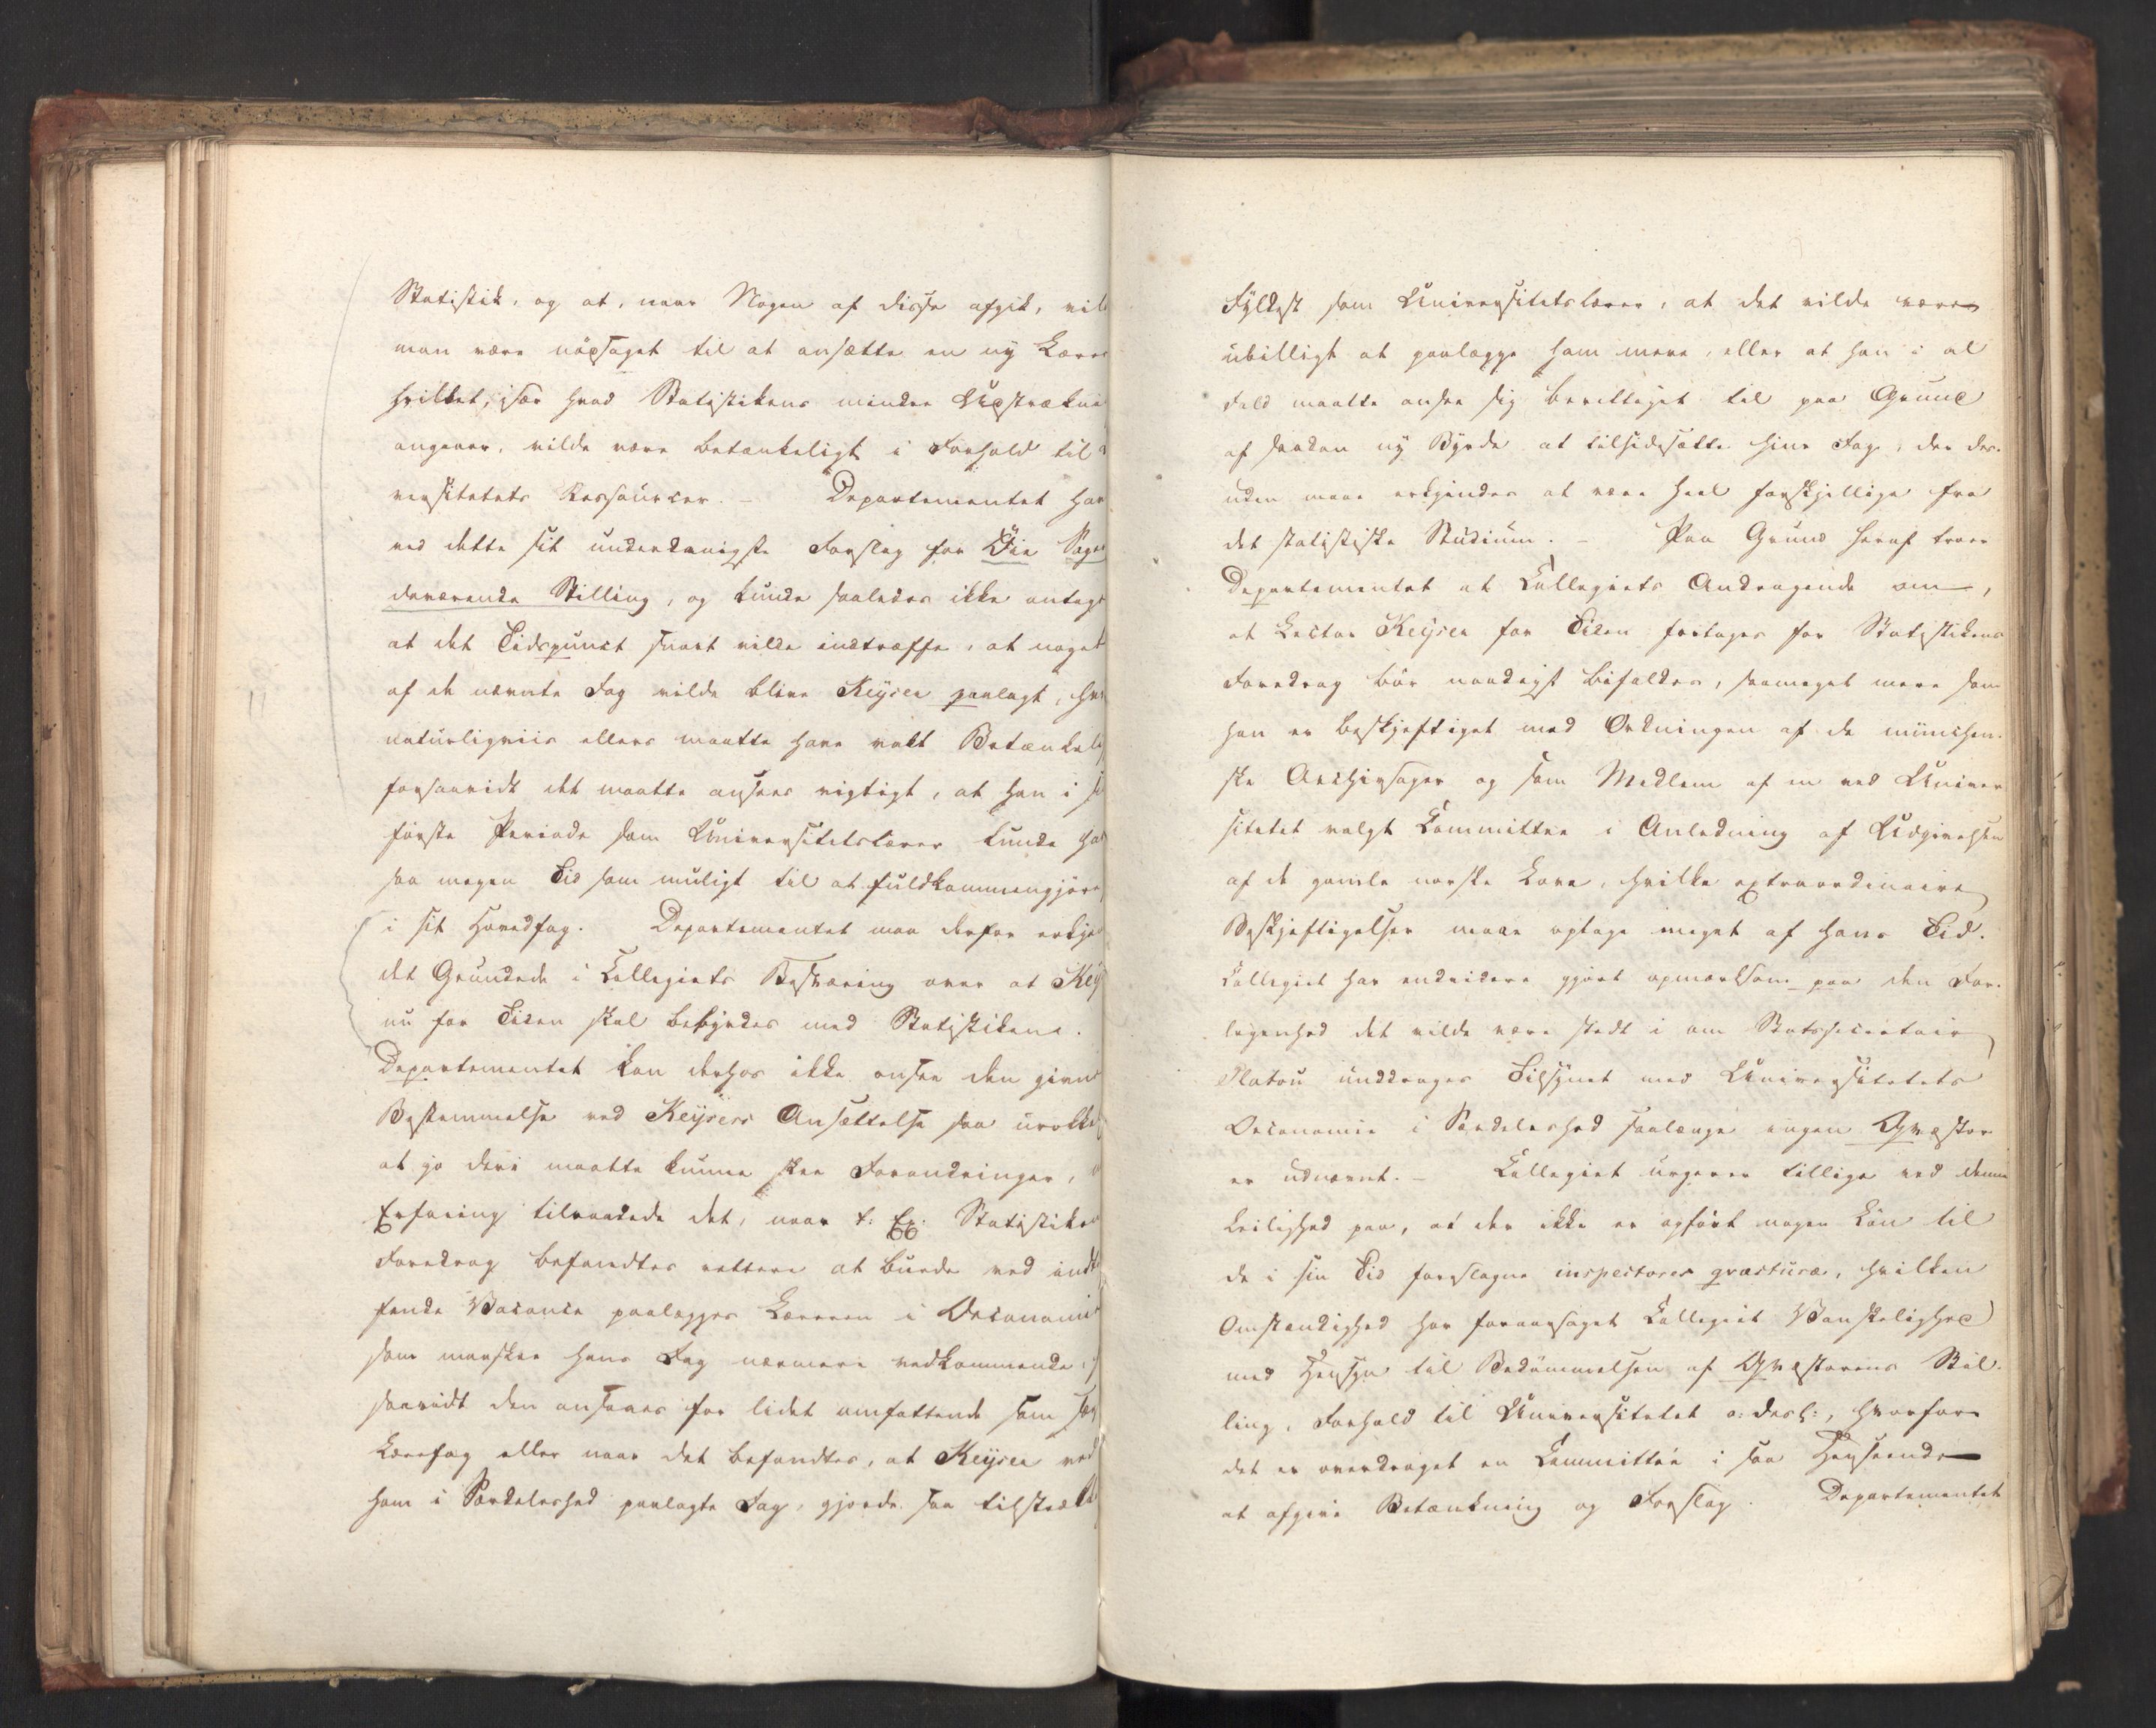 Statistik, og at, naar Nogen af disse afgik, vil
man være nödsaget til at ansætte en ny Lærer
hvilket, især hvad Statistikens mindre Udstrækni
angaaer, vilde være betænkeligt i Forhold til
versitetets Ressourcer. – Departementet har
ved dette sit underdanigste Forslag for Öie Sager
daværende Stilling, og kunde saaledes ikke antage
at det Tidspunct snart vilde indtræffe, at noget
af de nævnte Fag vilde blive Keyser paalagt, hv
naturligviis ellers maatte have vakt Betænkeli
forsaavidt det maatte ansees vigtigt, at han i si
første Periode som Universitetslærer kunde ha
saa megen Tid som muligt til at fuldkommengjöre
i sit Hovedfag. Departementet maa derfor erkje
det Grundede i Collegiets Besværing over at Key
nu for Tiden skal bebyrdes med Statistiken.
Departementet kan derhos ikke ansee den givne
Bestemmelse ved Keysers Ansættelse saa urokke
at jo deri maatte kunne skee Forandringer,
Erfaring tilraadede det, naar t. Ex. Statistiken
Foredrag befandtes rettere at burde ved indt
fende Vacance paalægges Læreren i Oeconomie
som maaskee hans Fag nærmere vedkommende,
saavidt den ansaaes for lidet omfattende som sær
Lærefag eller naar det befandtes, at Keyser ved
ham i Særdeleshed paalagte Fag, gjorde saa tilstrækk
Fyldest som Universitetslærer, at det vilde være
ubilligt at paalægge ham mere, eller at han i al
Fald maatte ansee sig berettiget til paa Grund
af saadan ny Byrde at tilsidesætte hine Fag, der des-
uden maae erkjendes at være heel forskjellige fra
det statistiske Studium. – Paa Grund heraf troer
Departementet at Collegiets Andragende om,
at Lector Keyser for Tiden fritages for Statistikens
Foredrag bör naadigst bifaldes, saameget mere som
han er beskjeftiget med Ordningen af de münchen-
ske Archivsager og som Medlem af en ved Univer
sitetet valgt Committee i Anledning af Udgivelsen
af de gamle norske Love, hvilke extraordinaire
Beskjeftigelser maae optage meget af hans Tid.
Collegiet har endvidere gjort opmærksom paa den For-
legenhed det vilde være stedt i om Statssecretair
Platou unddrages Tilsynet med Universitetets
Oeconomie i Særdeleshed saalænge ingen Qvæstor
er udnævnt. – Collegiet urgerer tillige ved denne
Leilighed paa, at der ikke er opfört nogen Lön til
de i sin Tid foreslagne inspectores qvæsturæ, hvilken
Omstændighed har foraarsaget Collegiet Vanskelighed
med Hensyn til Bedömmelsen af Qvæstorens Stil-
ling, Forhold til Universitetet o: desl:, hvorfor
det er overdraget en Committée i saa Henseende
at afgive Betænkning og Forslag. Departementet